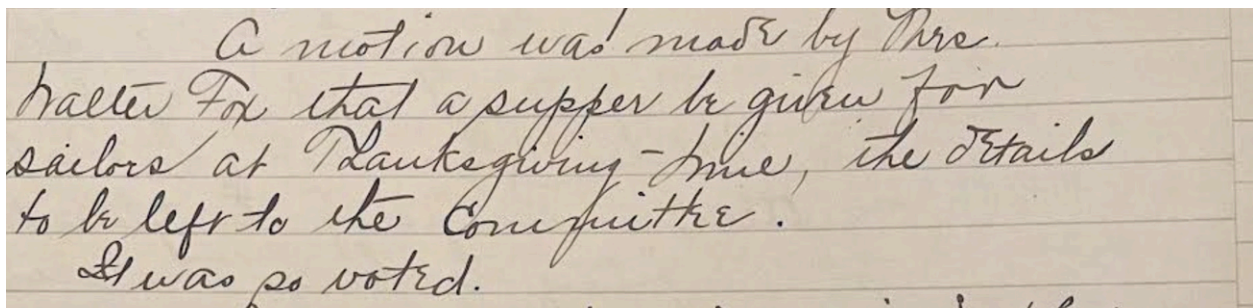 A motion was made by Mrs.
Walter Fox that a supper be given for
sailors at Thanksgiving-time, the details
to be left to the Committee.
It was so voted.